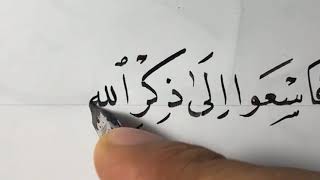 فَاسْعَوْا اِلَىٰ ذِكْرِ اللّٰهِ